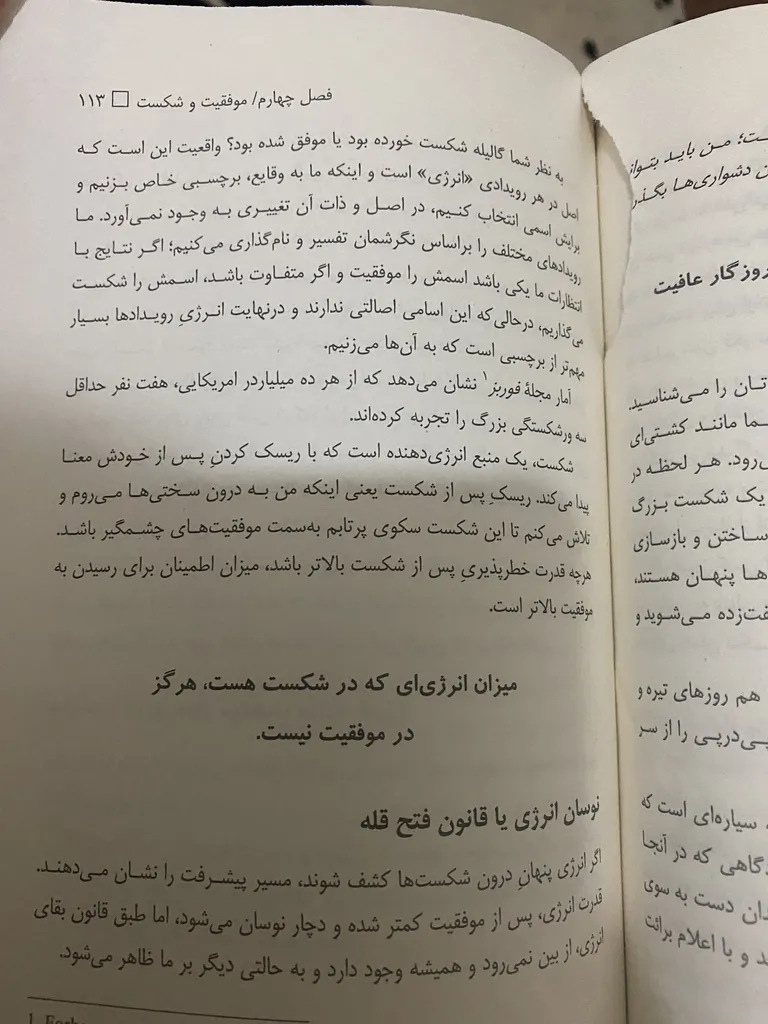 فصل چهارم/ موفقیت و شکست □ ۱۱۳
به نظر شما گالیله شکست خورده بود یا موفق شده بود؟ واقعیت این است که
اصل در هر رویدادی «انرژی» است و اینکه ما به وقایع، برچسبی خاص بزنیم و
برایش اسمی انتخاب کنیم، در اصل و ذات آن تغییری به وجود نمی‌آورد. ما
رویدادهای مختلف را براساس نگرشمان تفسیر و نام‌گذاری می‌کنیم؛ اگر نتایج با
انتظارات ما یکی باشد اسمش را موفقیت و اگر متفاوت باشد، اسمش را شکست
می‌گذاریم، درحالی‌که این اسامی اصالتی ندارند و درنهایت انرژیِ رویدادها بسیار
مهم‌تر از برچسبی است که به آن‌ها می‌زنیم.
آمار مجلهٔ فوربز۱ نشان می‌دهد که از هر ده میلیاردر امریکایی، هفت نفر حداقل
سه ورشکستگی بزرگ را تجربه کرده‌اند.
شکست، یک منبع انرژی‌دهنده است که با ریسک کردنِ پس از خودش معنا
پیدا می‌کند. ریسکِ پس از شکست یعنی اینکه من به درون سختی‌ها می‌روم و
تلاش می‌کنم تا این شکست سکوی پرتابم به‌سمت موفقیت‌های چشمگیر باشد.
هرچه قدرت خطرپذیریِ پس از شکست بالاتر باشد، میزان اطمینان برای رسیدن به
موفقیت بالاتر است.
میزان انرژی‌ای که در شکست هست، هرگز
در موفقیت نیست.
نوسان انرژی یا قانون فتح قله
اگر انرژی پنهانِ درون شکست‌ها کشف شوند، مسیر پیشرفت را نشان می‌دهند.
قدرت انرژی، پس از موفقیت کمتر شده و دچار نوسان می‌شود، اما طبق قانون بقای
انرژی، از بین نمی‌رود و همیشه وجود دارد و به حالتی دیگر بر ما ظاهر می‌شود.
من باید بتوا
دشواری‌ها بگذر
روزگار عافیت
تان را می‌شناسید.
ما مانند کشتی‌ای
رود. هر لحظه در
یک شکست بزرگ
ساختن و بازسازی
ها پنهان هستند،
فت‌زده می‌شوید و
هم روزهای تیره و
پی‌درپی را از سر
سیاره‌ای است که
گاهی که در آنجا
دان دست به سوی
د و با اعلام برائت